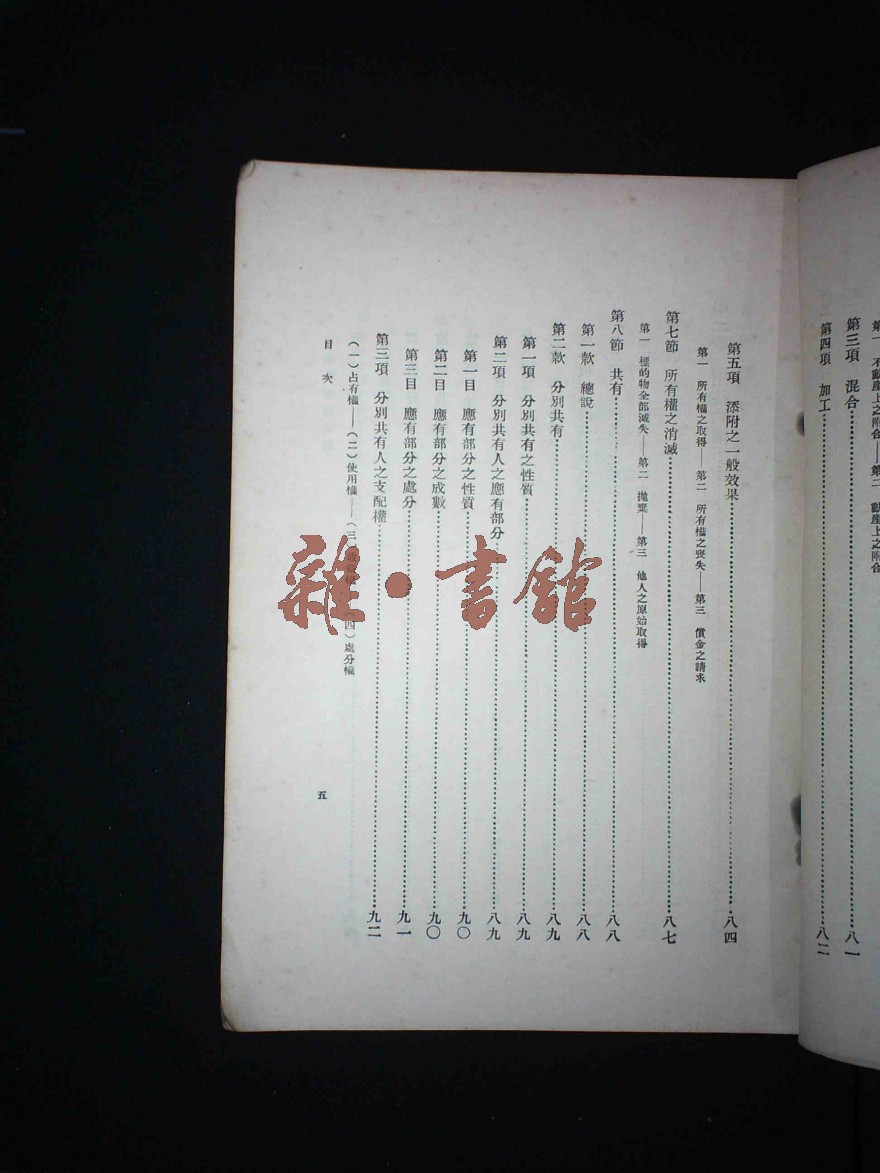 第一 不動產上之附合——第二 動產上之附合
第三項 混合……八一
第四項 加工……八二
第五項 添附之一般效果……八四
第一 所有權之取得——第二 所有權之喪失——第三 償金之請求
第七節 所有權之消滅……八七
第一 標的物全部滅失——第二 拋棄——第三 他人之原始取得
第八節 共有……八八
第一款 總說……八八
第二款 分別共有……八九
第一項 分別共有之性質……八九
第二項 分別共有人之應有部分……八九
第一目 應有部分之性質……九〇
第二目 應有部分之成數……九〇
第三目 應有部分之處分……九一
第三項 分別共有人之支配權……九二
(一)占有權——(二)使用權——(三)(四)處分權
目次
五
雜·書館